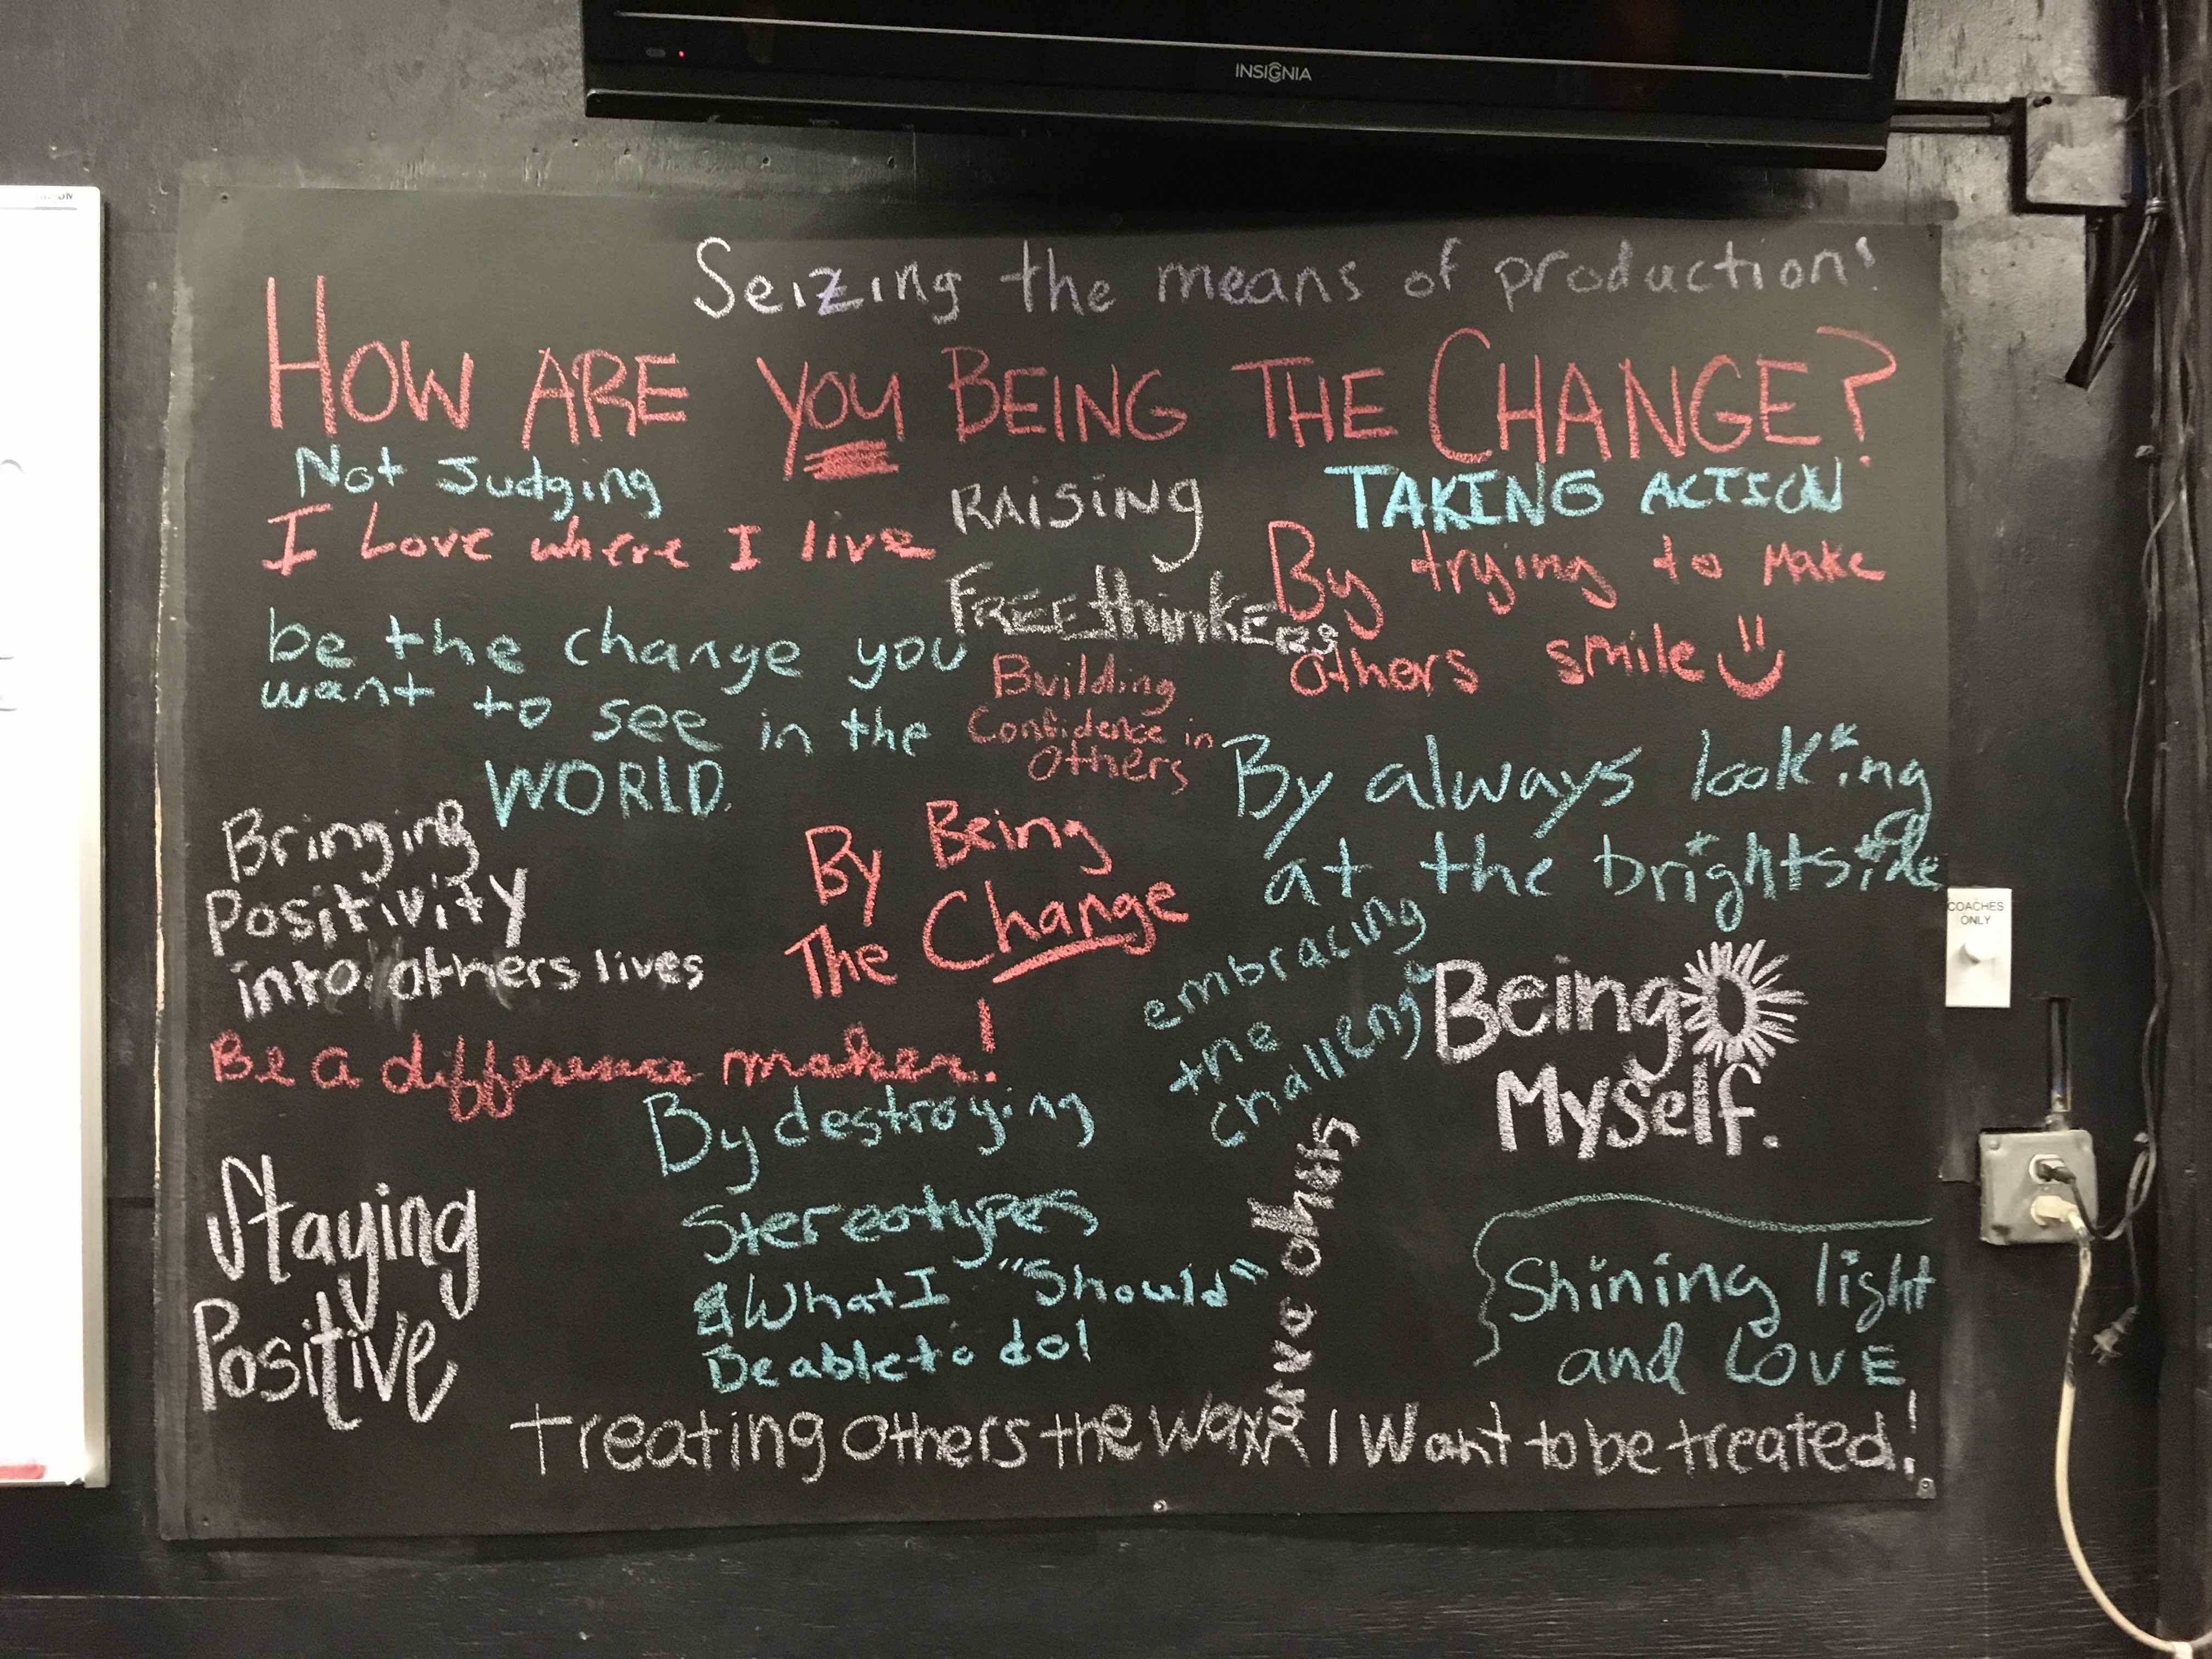 INSIGNIA
Seizing the means of production!
HOW ARE YOU BEING THE CHANGE?
Not Judging
I Love where I live
RAISING
FREEthinkERS
TAKING ACTION
By trying to make
others smile
be the change you
want to see in the
WORLD.
Building
Confidence in
Others
By always looking
at the brightside
Bringing
Positivity
into others lives
By Being
The Change
embracing
the
challenge
Being
Myself.
COACHES
ONLY
Be a difference maker!
By destroying
Stereotypes
& What I "Should"
Be able to do!
Staying
Positive
Shining light
and LOVE
treating others the way I Want to be treated!